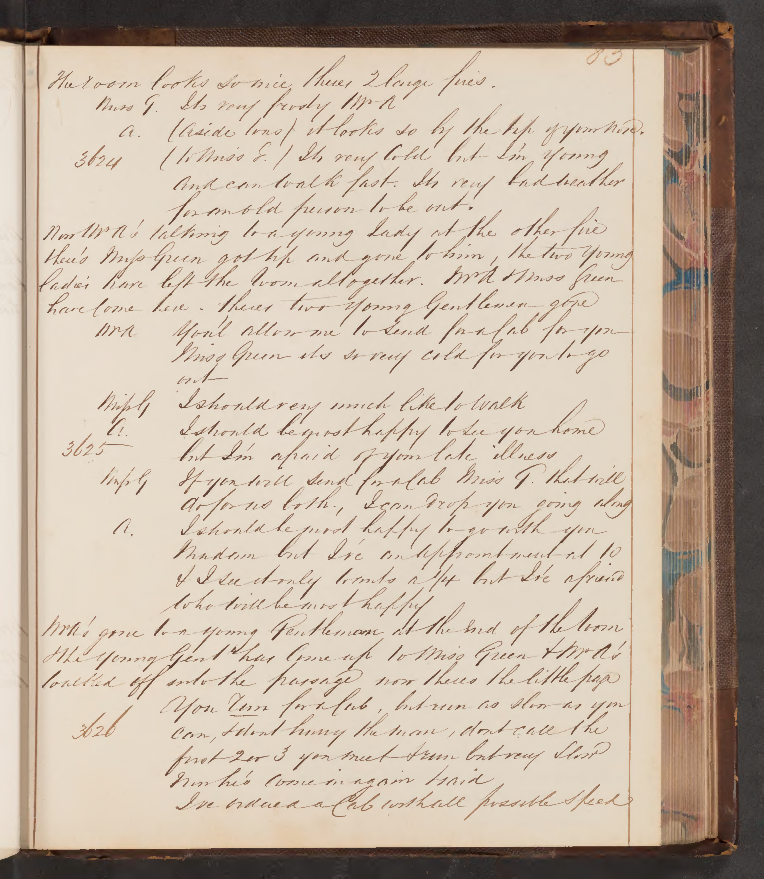 83
The room looks so nice, theres 2 large fires.
Miss G. Its very frosty Mr A
A. (Aside loud) it looks so by the tip of your nose.
3624 (to Miss G.) Its very Cold but I'm young
and can walk fast. Its very bad weather
for an old person to be out.
Now Mr A's talking to a young Lady at the other fire
there's Miss Green got up and gone to him, the two young
ladies have left the room altogether. Mr A & Miss Green
have come here - theres two young Gentlemen gone
Mr A You'l allow me to send for a Cab for you
Miss Green its so very cold for you to go
out
Miss G I should very much like to walk
A. I should be most happy to see you home
3625 but I'm afraid of your late illness
Miss G If you will send for a Cab Miss T. that will
do for us both, I can drop you going along
A. I should be most happy to go with you
Madam but I've an appointment at 10
& I see it only wants a 1/4 but I've a friend
who will be most happy
Mr A's gone to a young Gentleman at the end of the room
& the young Gent has come up to Miss Green & Mr A's
walked off into the passage now theres the little page
You Tom for a Cab, but run as slow as you
3626 can, & dont hurry the man, dont call the
first 2 or 3 you meet & run but very slow
Now he's come in again & said
I've ordered a Cab with all possible speed